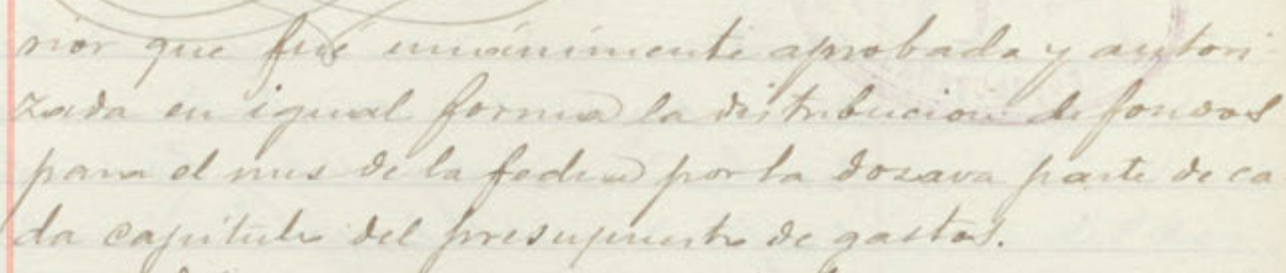 rior que fué unánimente aprobada y autori
zada en igual forma la distribucion de fondos
para el mes de la fecha por la dozava parte de ca
da capitulo del presupuesto de gastos.